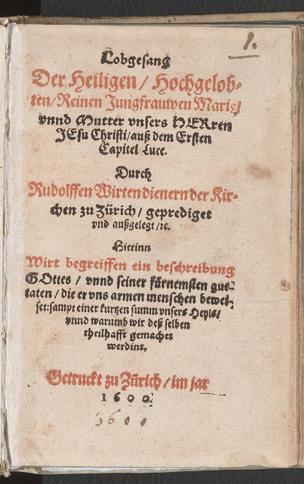 1.
Lobgesang
Der Heiligen / Hochgelob-
ten / Reinen Jungfrauwen Marie /
vnnd Mutter vnsers HERren
JEsu Christi / auß dem Ersten
Capitel Luce.
Durch
Rudolffen Wirten dienern der Kir-
chen zu Zürich / geprediget
vnd außgelegt / ꝛc.
Hierinn
Wirt begreiffen ein beschreibung
GOttes / vnnd seiner fürnemsten gut-
taten / die er vns armen menschen bewei-
set: sampt einer kurtzen summ vnsers Heyls /
vnnd warumb wir deß selben
theilhafft gemachet
werdint.
Getruckt zu Zürich / im jar
1600
1600